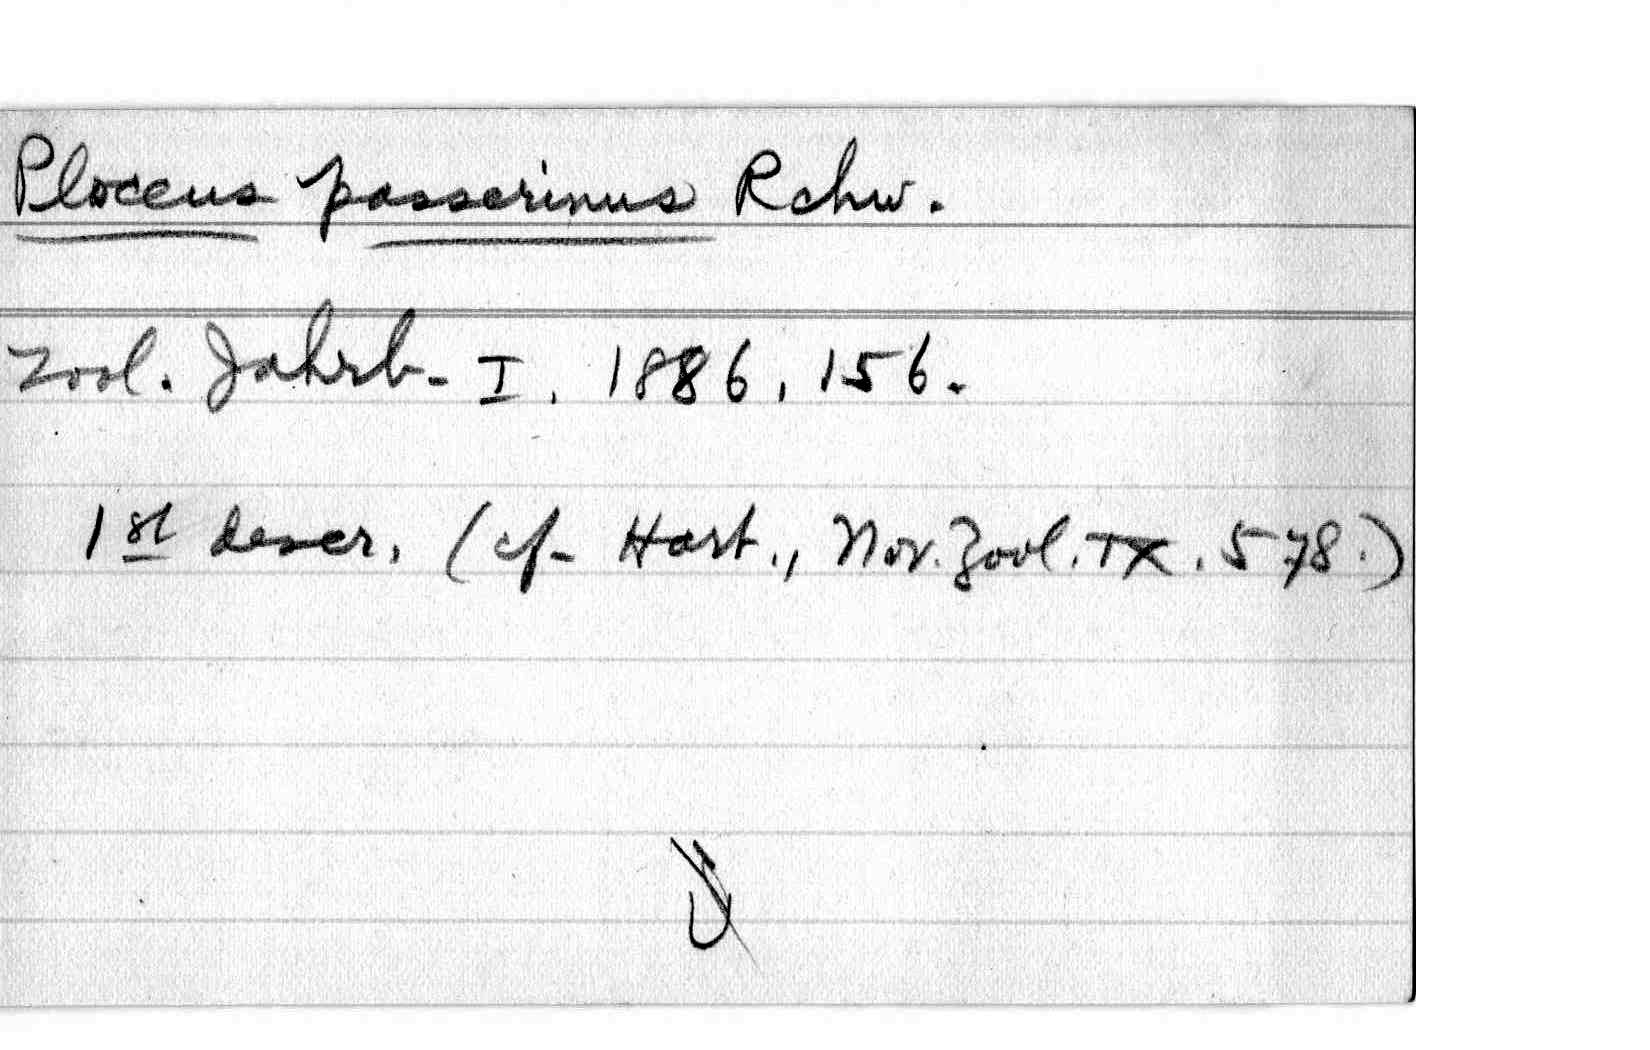 Ploceus passerinus Rchw.
Zool. Jahrb. I. 1886, 156.
1st descr. (cf. Hart., Nov. Zool. IX. 578.)